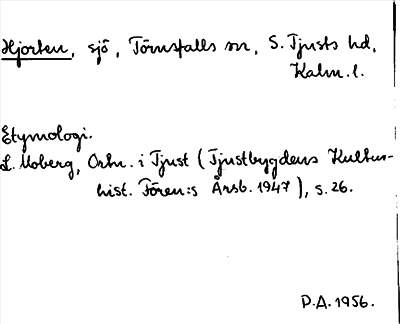 Hjorten, sjö, Törnsfalls sn, S. Tjusts hd,
Kalm. l.
Etymologi.
L. Moberg, Ortn. i Tjust (Tjustbygdens Kultur-
hist. Fören:s Årsb. 1947), s. 26.
P.A. 1956.